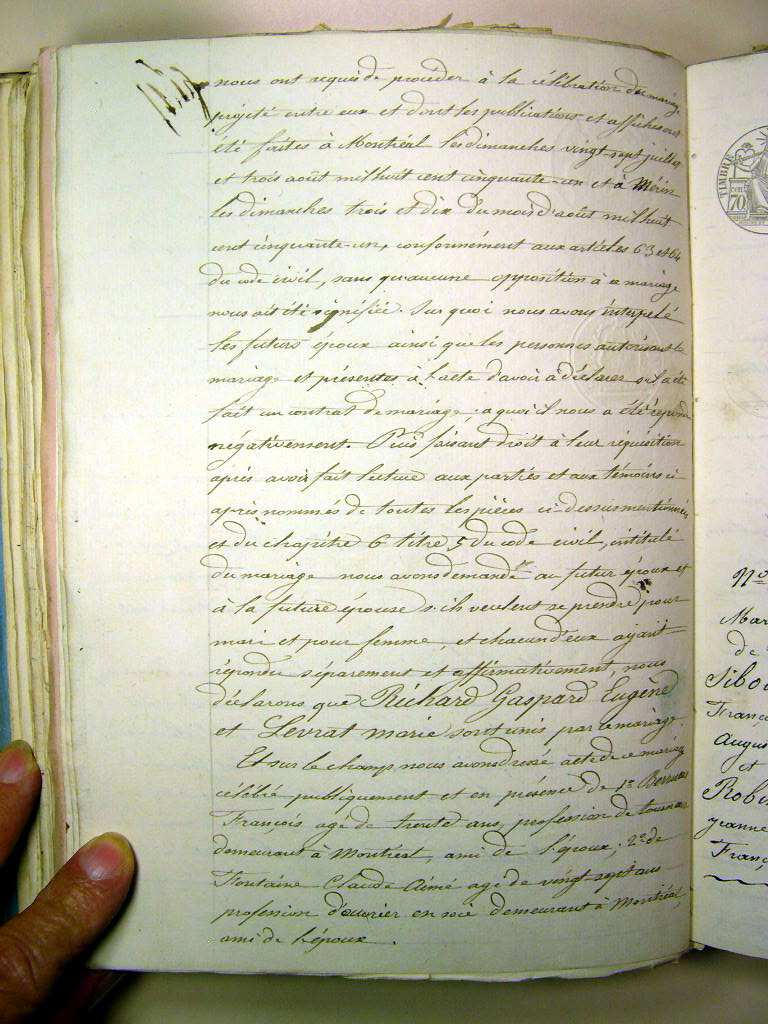 nous ont requis de procéder à la célébration du mariage
projeté entre eux et dont les publications et affiches ont
été faites à Montréal les dimanches vingt sept juillet
et trois août mil huit cent cinquante-un et à
les dimanches trois et dix du mois d'août mil huit
cent cinquante-un, conformément aux articles 63 et 64
du code civil, sans qu'aucune opposition à ce mariage
nous ait été signifiée. Sur quoi nous avons interpelé
les futurs époux ainsi que les personnes autorisant le
mariage et présentes à l'acte d'avoir à déclarer s'il a été
fait un contrat de mariage, a quoi il nous a été répondu
négativement. Puis faisant droit à leur réquisition
après avoir fait lecture aux parties et aux témoins ci
après nommés de toutes les pièces ci-dessus mentionnées
et du chapitre 6 titre 5 du code civil, intitulé
du mariage nous avons demandé au futur époux et
à la future épouse s'ils veulent se prendre pour
mari et pour femme, et chacun d'eux ayant
répondu séparement et affirmativement, nous
déclarons que Richard Gaspard Eugène
et Levrat marie sont unis par le mariage.
Et sur le champ nous avons dressé acte de ce mariage
célébré publiquement et en présence de 1º
François agé de trente ans, profession de tourneur
demeurant à Montréal, ami de l'époux, 2º de
Fontaine Claude Aimé agé de vingt sept ans
profession d'ouvrier en soie demeurant à Montréal,
ami de l'époux.
TIMBRE
70
Nº
Mar
de
Sibo
Franço
Augu
et
Robi
jeanne
Franç